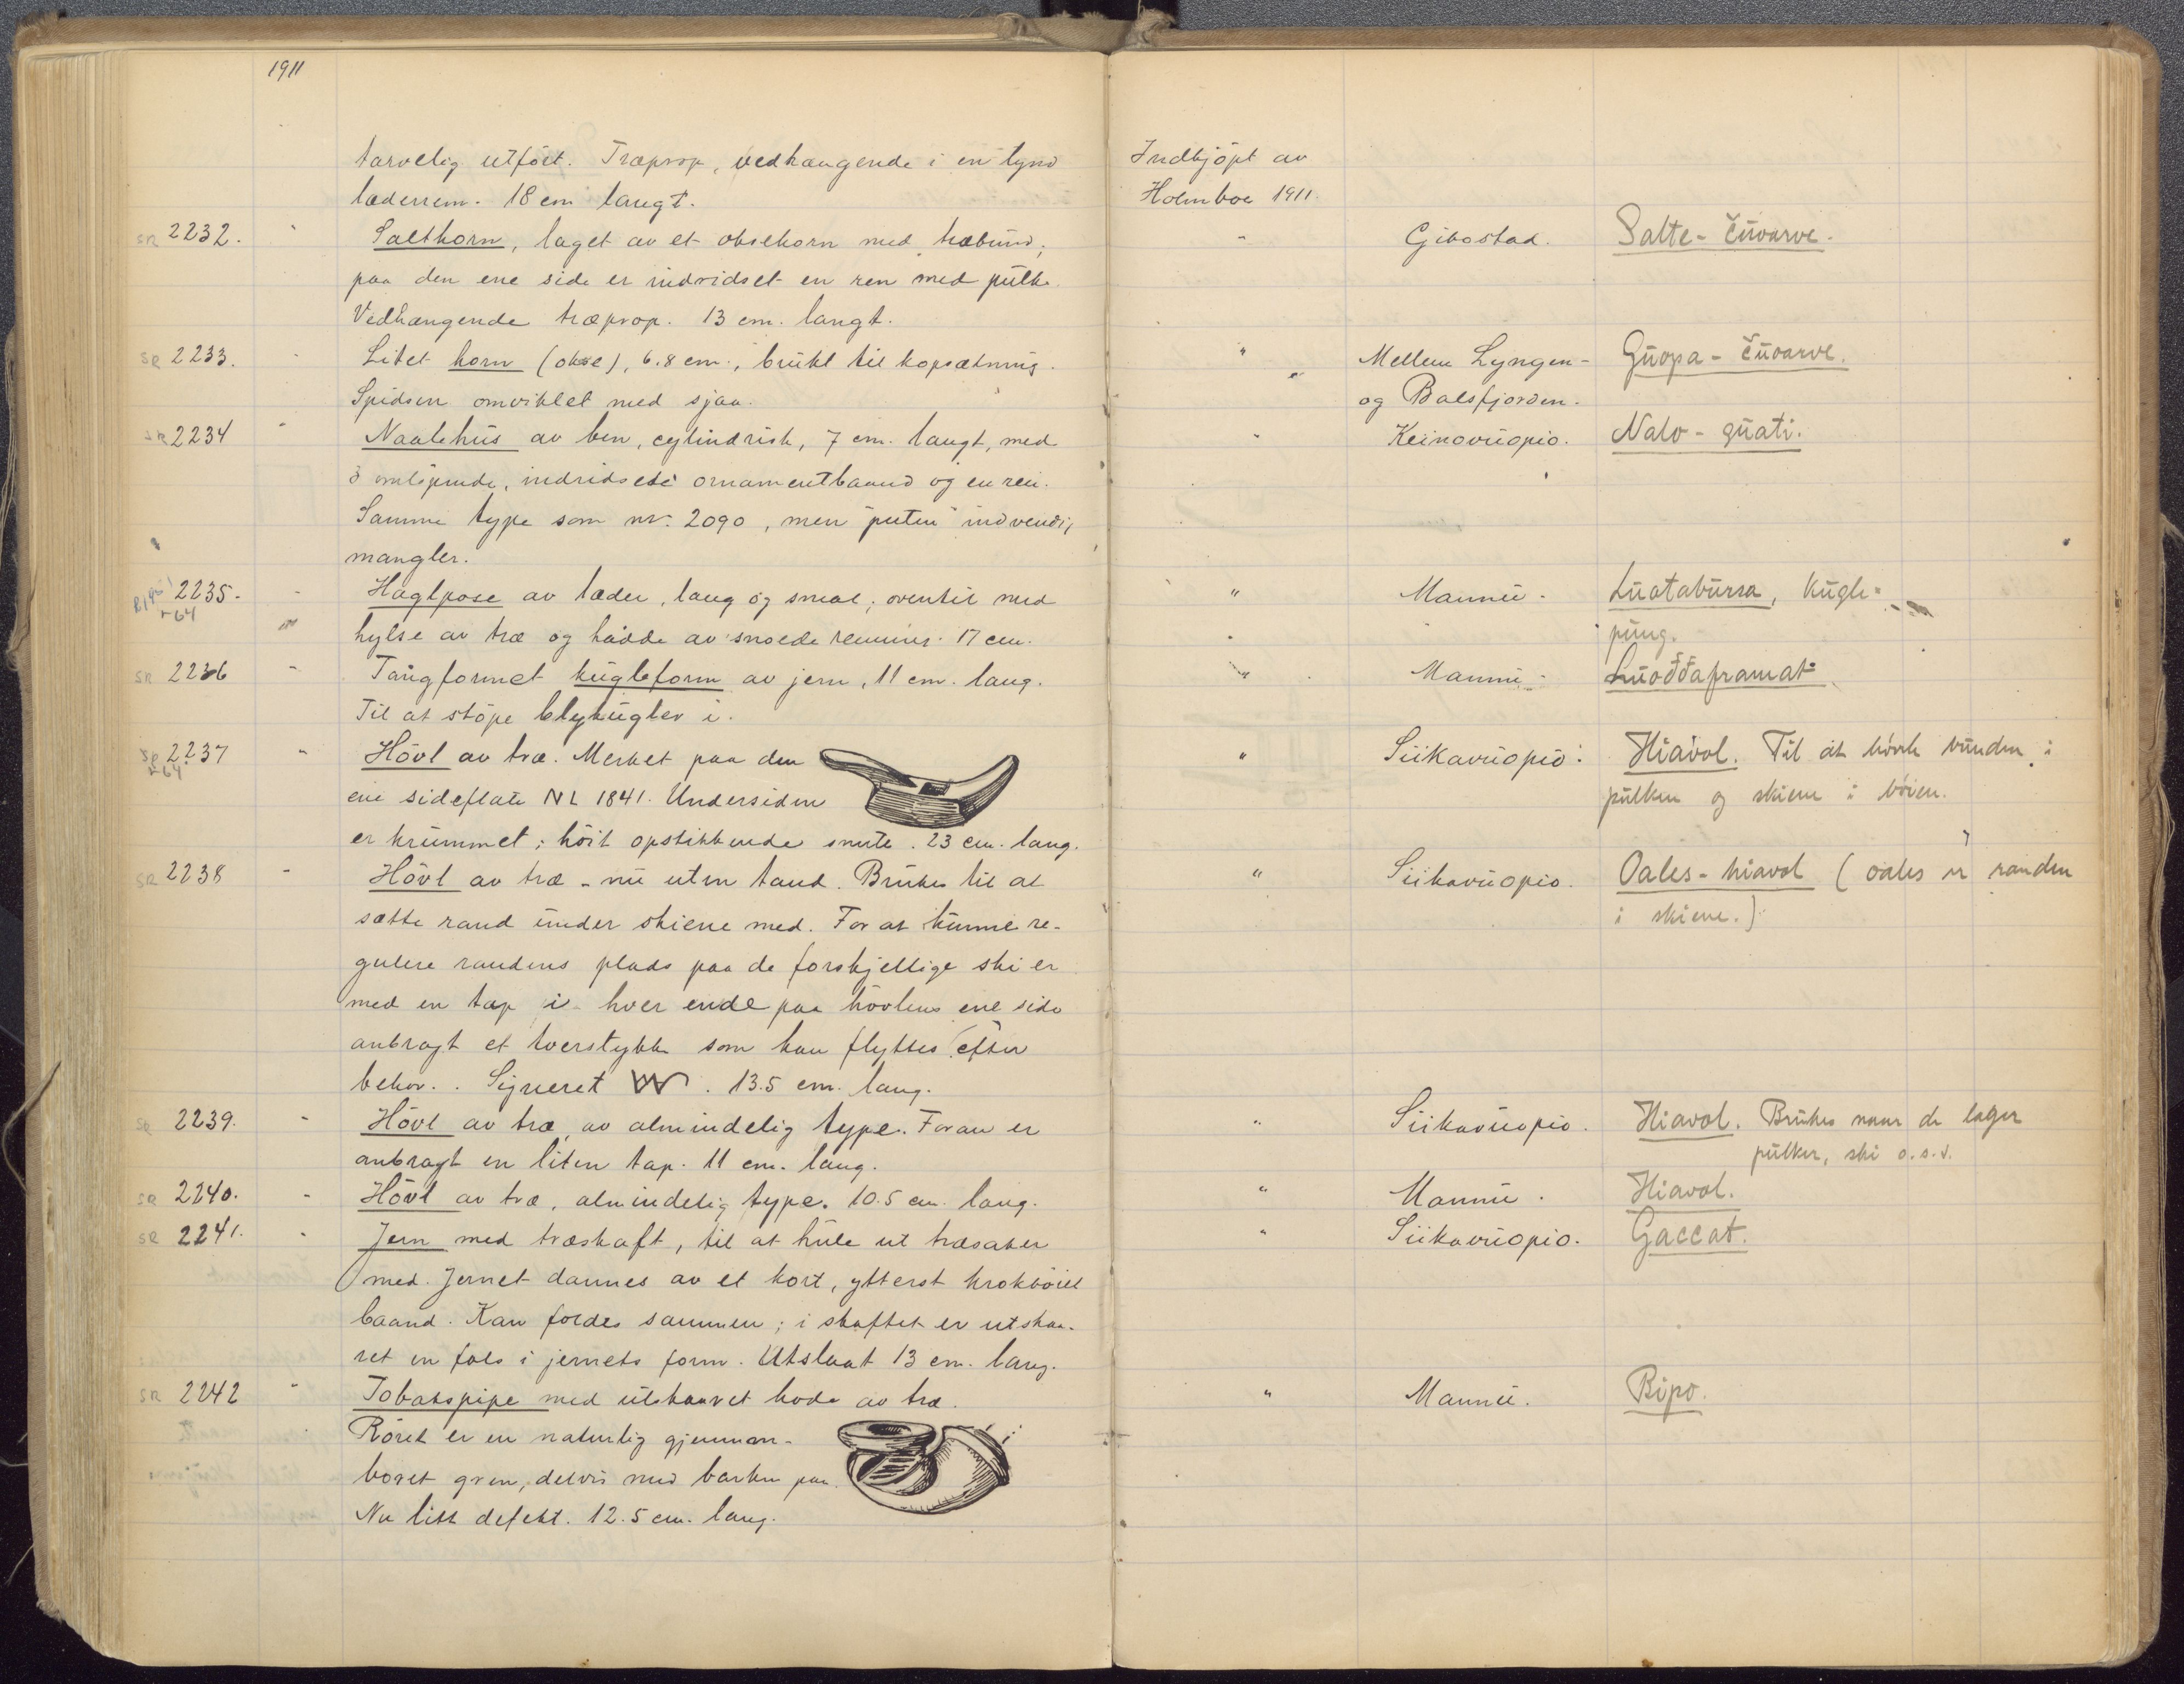 1911
tarvelig utført. Træprop, vedhængende i en tynd Indkjöpt av
læderrem. 18 cm langt. Holmboe 1911.
SR 2232. " Salthorn, laget av et oksehorn med træbund; " Gibostad. Salte-čuvarve.
paa den ene side er indridset en ren med pulk.
Vedhængende træprop. 13 cm. langt.
SR 2233. " Litet horn (okse), 6.8 cm., brukt til kopsætning. " Mellem Lyngen- Guopa-čuvarve.
Spidsen omviklet med sjaa. og Balsfjorden.
SR 2234 " Naalehus av ben, cylindrisk, 7 cm. langt, med " Keinovuopio. Nalo-guati.
3 omlöpende, indridsede ornamentbaand og en ren.
Samme type som nr. 2090, men "puten" indvendig
mangler.
2235. " Haglpose av læder, lang og smal; oventil med " Mannu. Luotabursa, Kugle-
+64 hylse av træ og hadde av snoede remmer. 17 cm. pung.
SR 2236 " Tangformet kugleform av jern, 11 cm. lang. " Mannu. Luođđaframat
Til at stöpe blykugler i.
SR 2237 " Hövl av træ. Merket paa den " Siikavuopio. Hiavol. Til at hövle bunden i
+64 ene sideflate NL 1841. Undersiden pulken og skiene i böien.
er krummet; höit opstikkende snute. 23 cm. lang.
SR 2238 " Hövl av træ - nu uten tand. Brukes til at " Siikavuopio. Oales-hiavol (oales er randen
sætte rand under skiene med. For at kunne re- i skiene.)
gulere randens plads paa de forskjellige ski er
med en tap i hver ende paa hövlens ene side
anbragt et tverstykke som kan flyttes efter
behov. Signeret W. 13.5 cm. lang.
SR 2239. " Hövl av træ, av almindelig type. Foran er " Siikavuopio. Hiavol. Brukes naar de lager
anbragt en liten tap. 11 cm. lang. pulker, ski o.s.v.
SR 2240. " Hövl av træ, almindelig type. 10.5 cm. lang. " Mannu. Hiavol.
SR 2241. " Jern med træskaft, til at hule ut træsaker " Siikavuopio. Gaccat.
med. Jernet dannes av et kort, ytterst krokböiet
baand. Kan foldes sammen; i skaftet er utskaa-
ret en fals i jernets form. Utslaat 13 cm. lang.
SR 2242 " Tobakspipe med utskaaret hode av træ. " Mannu. Bipo.
Röret er en naturlig gjennem-
boret gren, delvis med barken paa.
Nu litt defekt. 12.5 cm. lang.